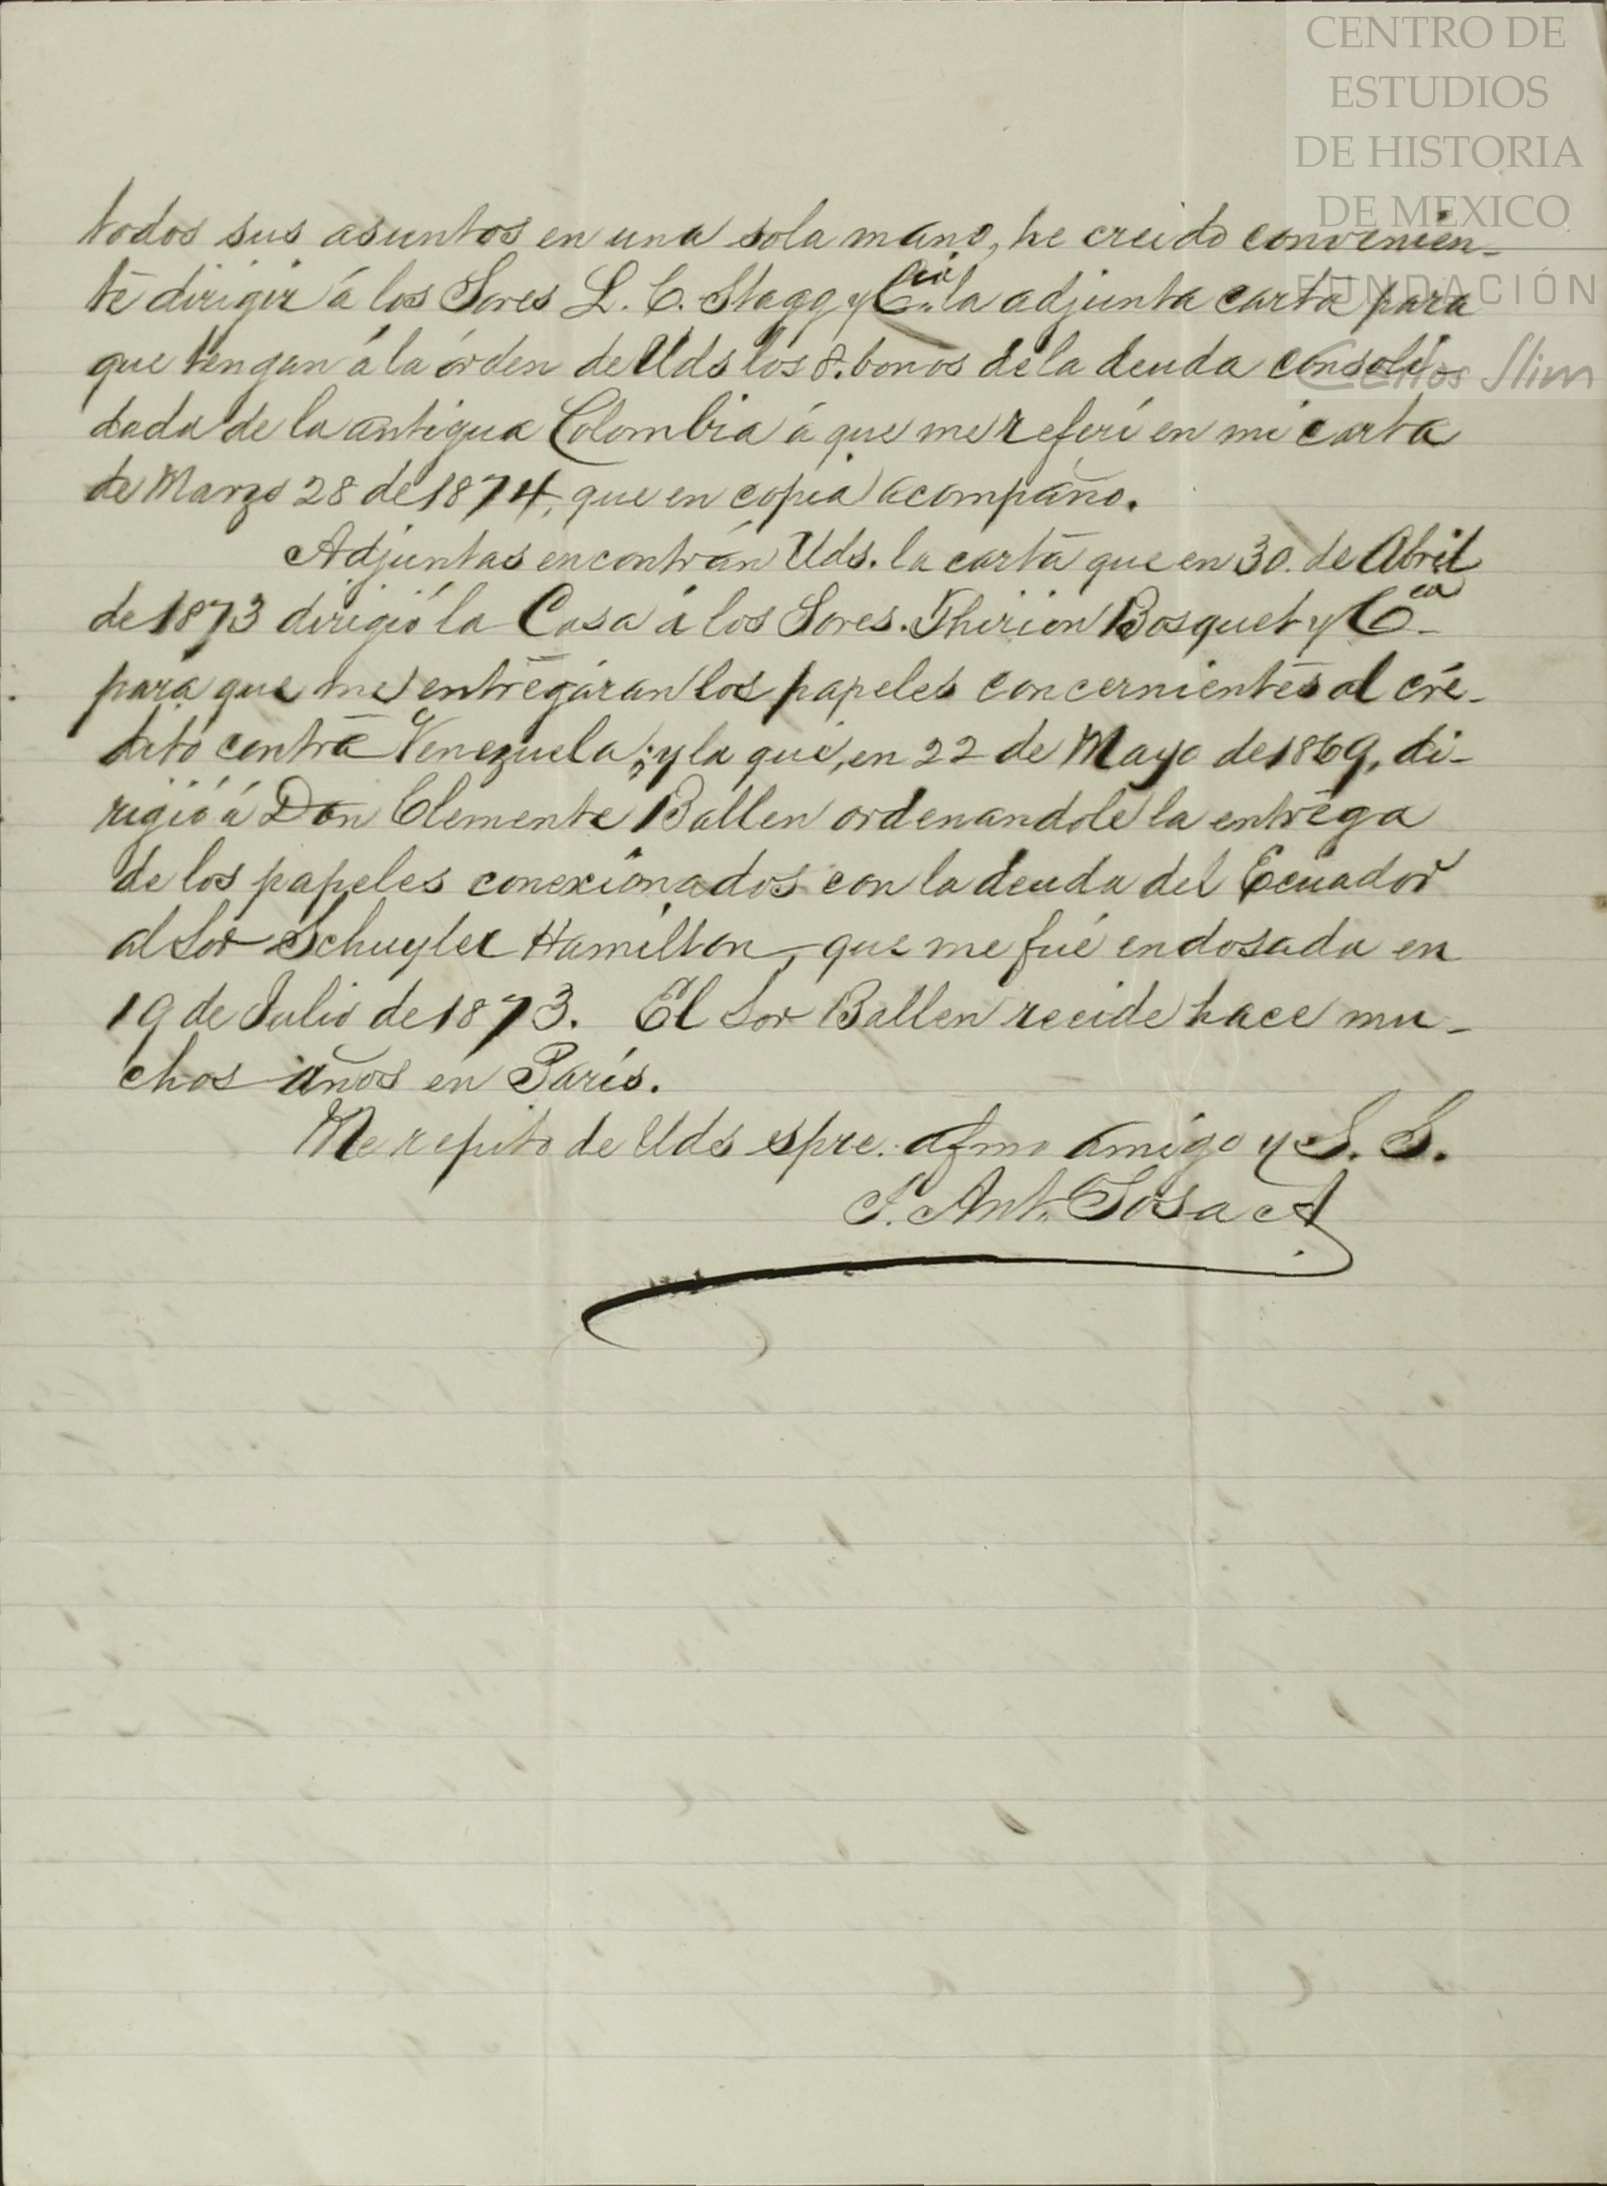 CENTRO DE
ESTUDIOS
DE HISTORIA
DE MEXICO
FUNDACIÓN
Carlos Slim
todos sus asuntos en una sola mano, he creido convenien-
te dirigir á los Sores L. C. Stagg y Cia la adjunta carta para
que tengan á la órden de Uds los 8. bonos de la deuda consoli-
dada de la antigua Colombia á que me referí en mi carta
de Marzo 28 de 1874, que en copia acompaño.
Adjuntas encontrán Uds. la carta que en 30. de Abril
de 1873 dirigió la Casa á los Sores. Thirion Bosquet y Cia
para que me entregáran los papeles concernientes al cré-
dito contra Venezuela; y la que, en 22 de Mayo de 1869, di-
rigió á Don Clemente Ballen ordenandole la entrega
de los papeles conexionados con la deuda del Ecuador
al Sor Schuyler Hamilton, que me fué endosada en
19 de Julio de 1873. El Sor Ballen recide hace mu-
chos años en Paris.
Me repito de Uds spre. afmo amigo y S. S.
F. Ant. Sosa A